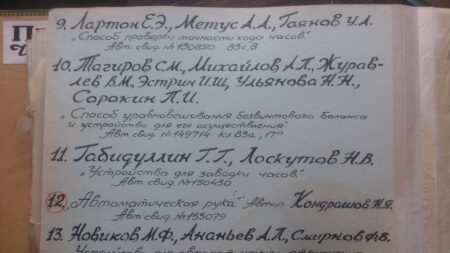 9. Лартон Е.Э., Метус А.А., Таянов У.А.
„Способ проверки точности хода часов"
Авт. свид. № 130850 83с,8
10. Тагиров С.М., Михайлов А.П., Журав-
лев В.М., Эстрин И.Ш, Ульянова Н.Н.,
Сорокин П.И.
„Способ уравновешивания безвинтового баланса
и устройство для его осуществления"
Авт. свид. № 149714 кл 83а., 17п.
11. Габидуллин Г.Г., Лоскутов Н.В.
„Устройство для заводки часов"
Авт. свид. № 150430
12. „Автоматическая рука" Автор Кондрашов Н.Я.
Авт. свид. № 155079
13. Новиков М.Ф., Ананьев А.П., Смирнов Ф.В.